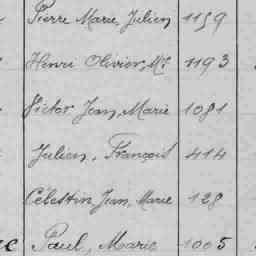 Pierre Marie, Julien 1159
Henri Olivier, Mie 1193
Victor Jean, Marie 1081
Julien, François 414
Célestin Jean, Marie 128
Paul, Marie 1005